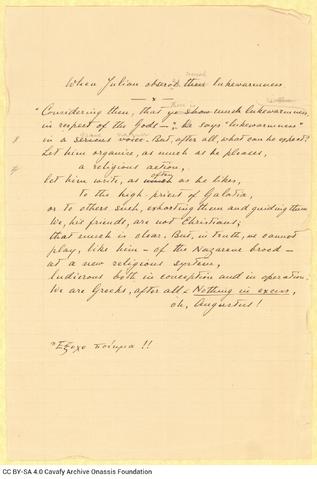 When Julian observ'd their lukewarmness
x
"Considering then, that ye show much lukewarmness
there is
in respect of the Gods —"; he says "lukewarmness"
in a serious voice. But, after all, what can he expect?
Let him organize, as much as he pleases,
a religious action,
often
let him write, as much as he likes,
to the high-priest of Galatia,
or to others such, exhorting them and guiding them
We, his friends, are not Christians,
that much is clear. But, in truth, we cannot
play, like him – of the Nazarene brood –
at a new religious system,
ludicrous both in conception and in operation.
We are Greeks, after all – Nothing in excess,
oh, Augustus!
"Εξοχο ποίημα !!
CC BY-SA 4.0 Cavafy Archive Onassis Foundation